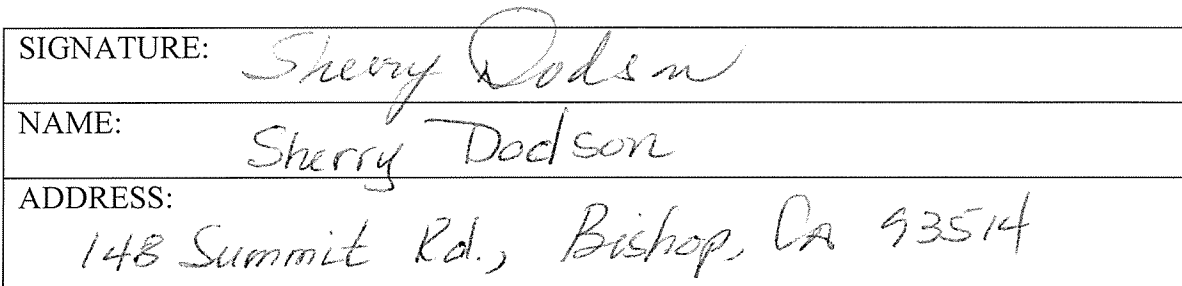 SIGNATURE: Sherry Dodson
NAME: Sherry Dodson
ADDRESS:
148 Summit Rd., Bishop, CA 93514